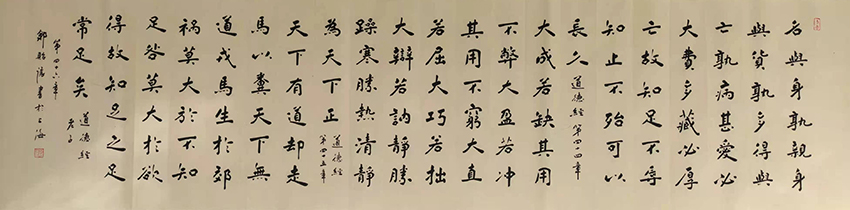 名與身孰親身
與貨孰多得與
亡孰病甚愛必
大費多藏必厚
亡故知足不辱
知止不殆可以
長久 道德經 第四十四章
大成若缺其用
不弊大盈若冲
其用不窮大直
若屈大巧若拙
大辯若訥靜勝
躁寒勝熱清靜
為天下正 道德經 第四十五章
天下有道却走
馬以糞天下無
道戎馬生於郊
禍莫大於不知
足咎莫大於欲
得故知足之足
常足矣 道德經 老子
第四十六章
書於上海